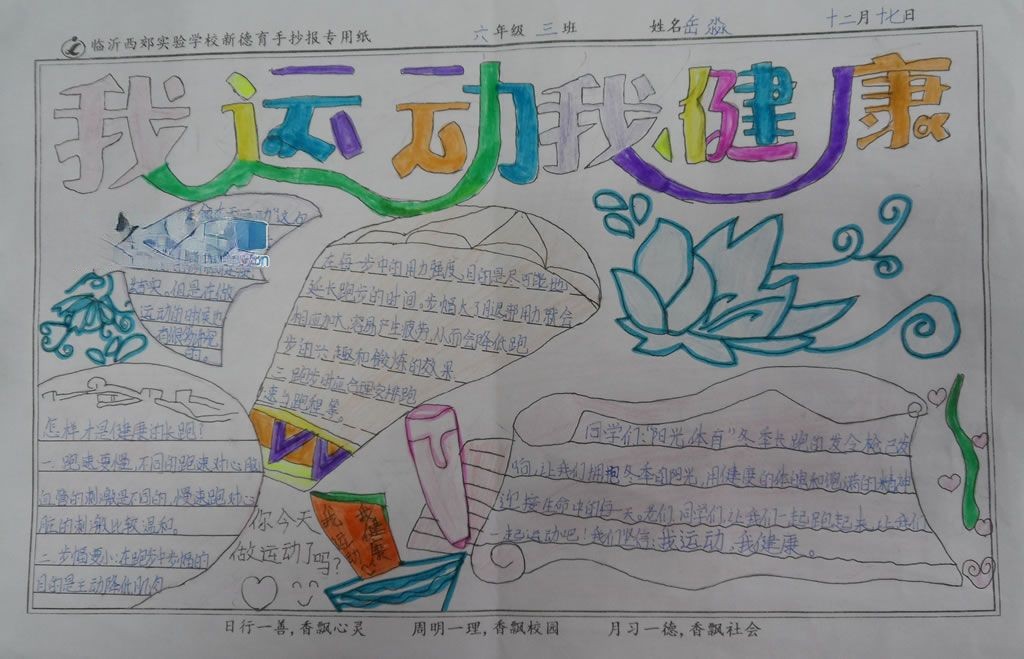 临沂西郊实验学校新德育手抄报专用纸 六年级 三班 姓名岳淼 十二月十七日
我运动我健康
动"这句
结实,但是在做
运动的时候也
的。
怎样才是健康的长跑?
一、跑速要慢,不同的跑速对心脏
血管的刺激是不同的,慢速跑对心
脏的刺激比较温和。
二、步幅要小:在跑步中步幅的
目的是主动降低肌肉
在每一步中的用力强度,目的是尽可能地
延长跑步的时间。步幅大了腿部用力就会
相应加大,容易产生疲劳,从而会降低跑
步的兴趣和锻炼的效果
三、跑步时应合理安排跑
速与跑程等。
你今天
做运动了吗?
我运动
我健康
同学们:"阳光体育"冬季长跑的发令枪已发
响,让我们拥抱冬季的阳光,用健康的体魄和饱满的精神
迎接生命中的每一天。老们同学们让我们一起跑起来,让我们
一起运动吧!我们坚信:我运动,我健康。
日行一善,香飘心灵 周明一理,香飘校园 月习一德,香飘社会